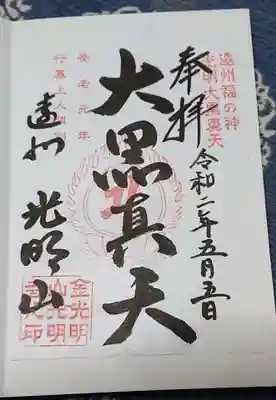 遠州福の神
光明大黒真天
奉拝
令和二年五月五日
大黒真天
養老元年
行基上人
遠州
光明山
金光明
山光明
寺之印